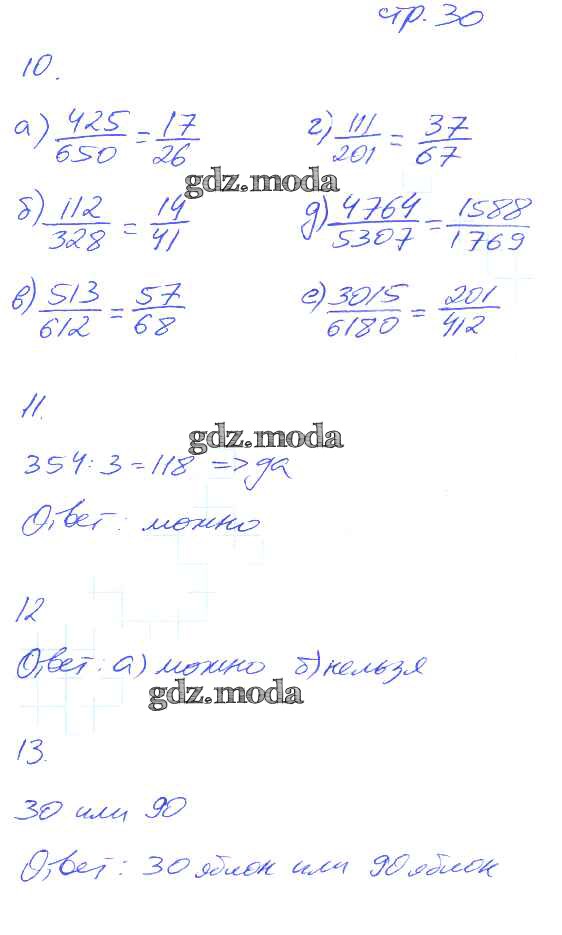 стр. 30
10.
а) 425/650 = 17/26 г) 111/201 = 37/67
gdz.moda
б) 112/328 = 14/41 д) 4764/5307 = 1588/1769
в) 513/612 = 57/68 е) 3015/6180 = 201/412
11.
gdz.moda
354:3=118 => да
Ответ: можно
12
Ответ: а) можно б) нельзя
gdz.moda
13.
30 или 90
Ответ: 30 яблок или 90 яблок